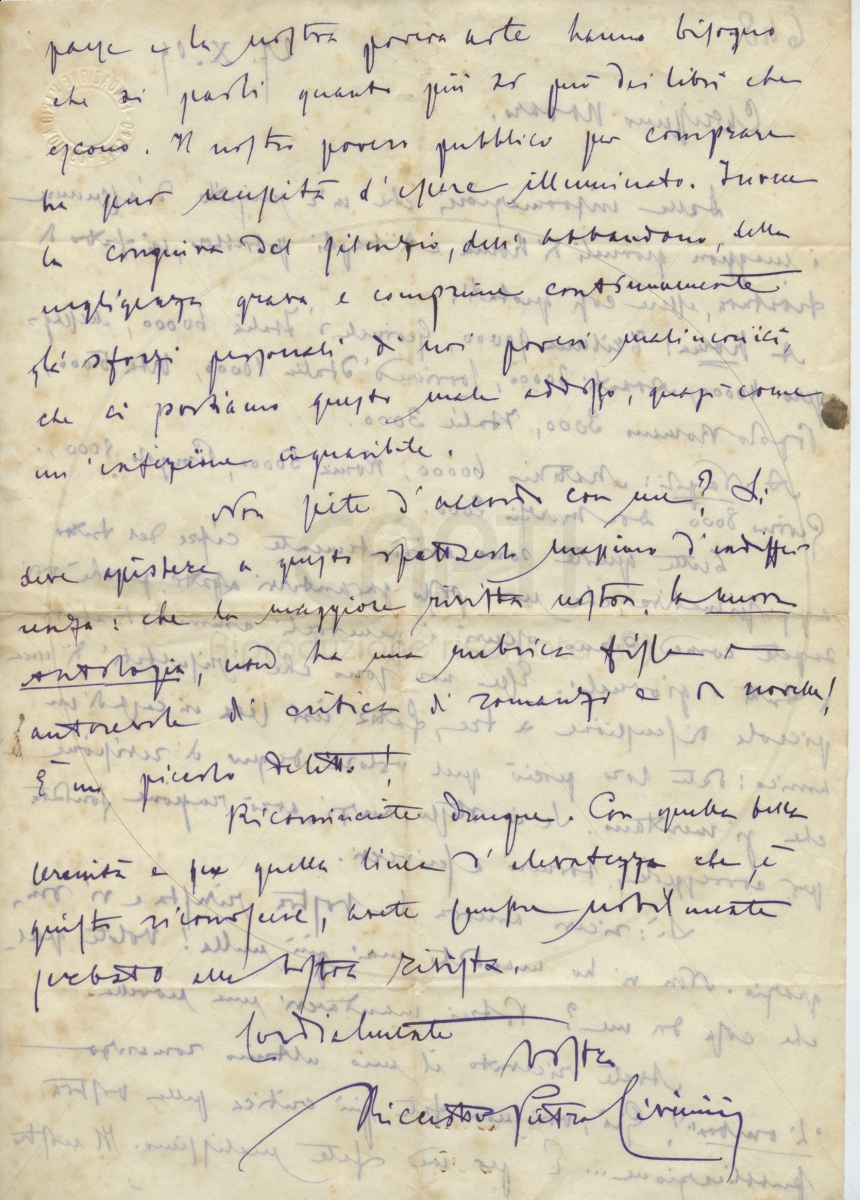 paese e la nostra povera arte hanno bisogno
che si parli quanto più si può dei libri che
escono. Il nostro povero pubblico per comprare
ha pur necessità d'essere illuminato. Invece
la congiura del silenzio, dell'abbandono, della
negligenza grava e comprime continuamente
gli sforzi personali di noi poveri malinconici,
che ci portiamo questo male addosso, quasi come
un'infezione inguaribile.
Non siete d'accordo con me? Si
deve assistere a questo spettacolo massimo d'indiffe-
renza: che la maggiore rivista nostra, la Nuova
Antologia, non ha una rubrica fissa e
autorevole di critica di romanzi e di novelle!
È un piccolo delitto!
Ricominciate dunque. Con quella bella
serenità e per quella linea d'elevatezza che, è
giusto riconoscere, avete sempre nobilmente
serbato alla vostra rivista.
Cordialmente
vostro
Riccardo Pietro Civinini